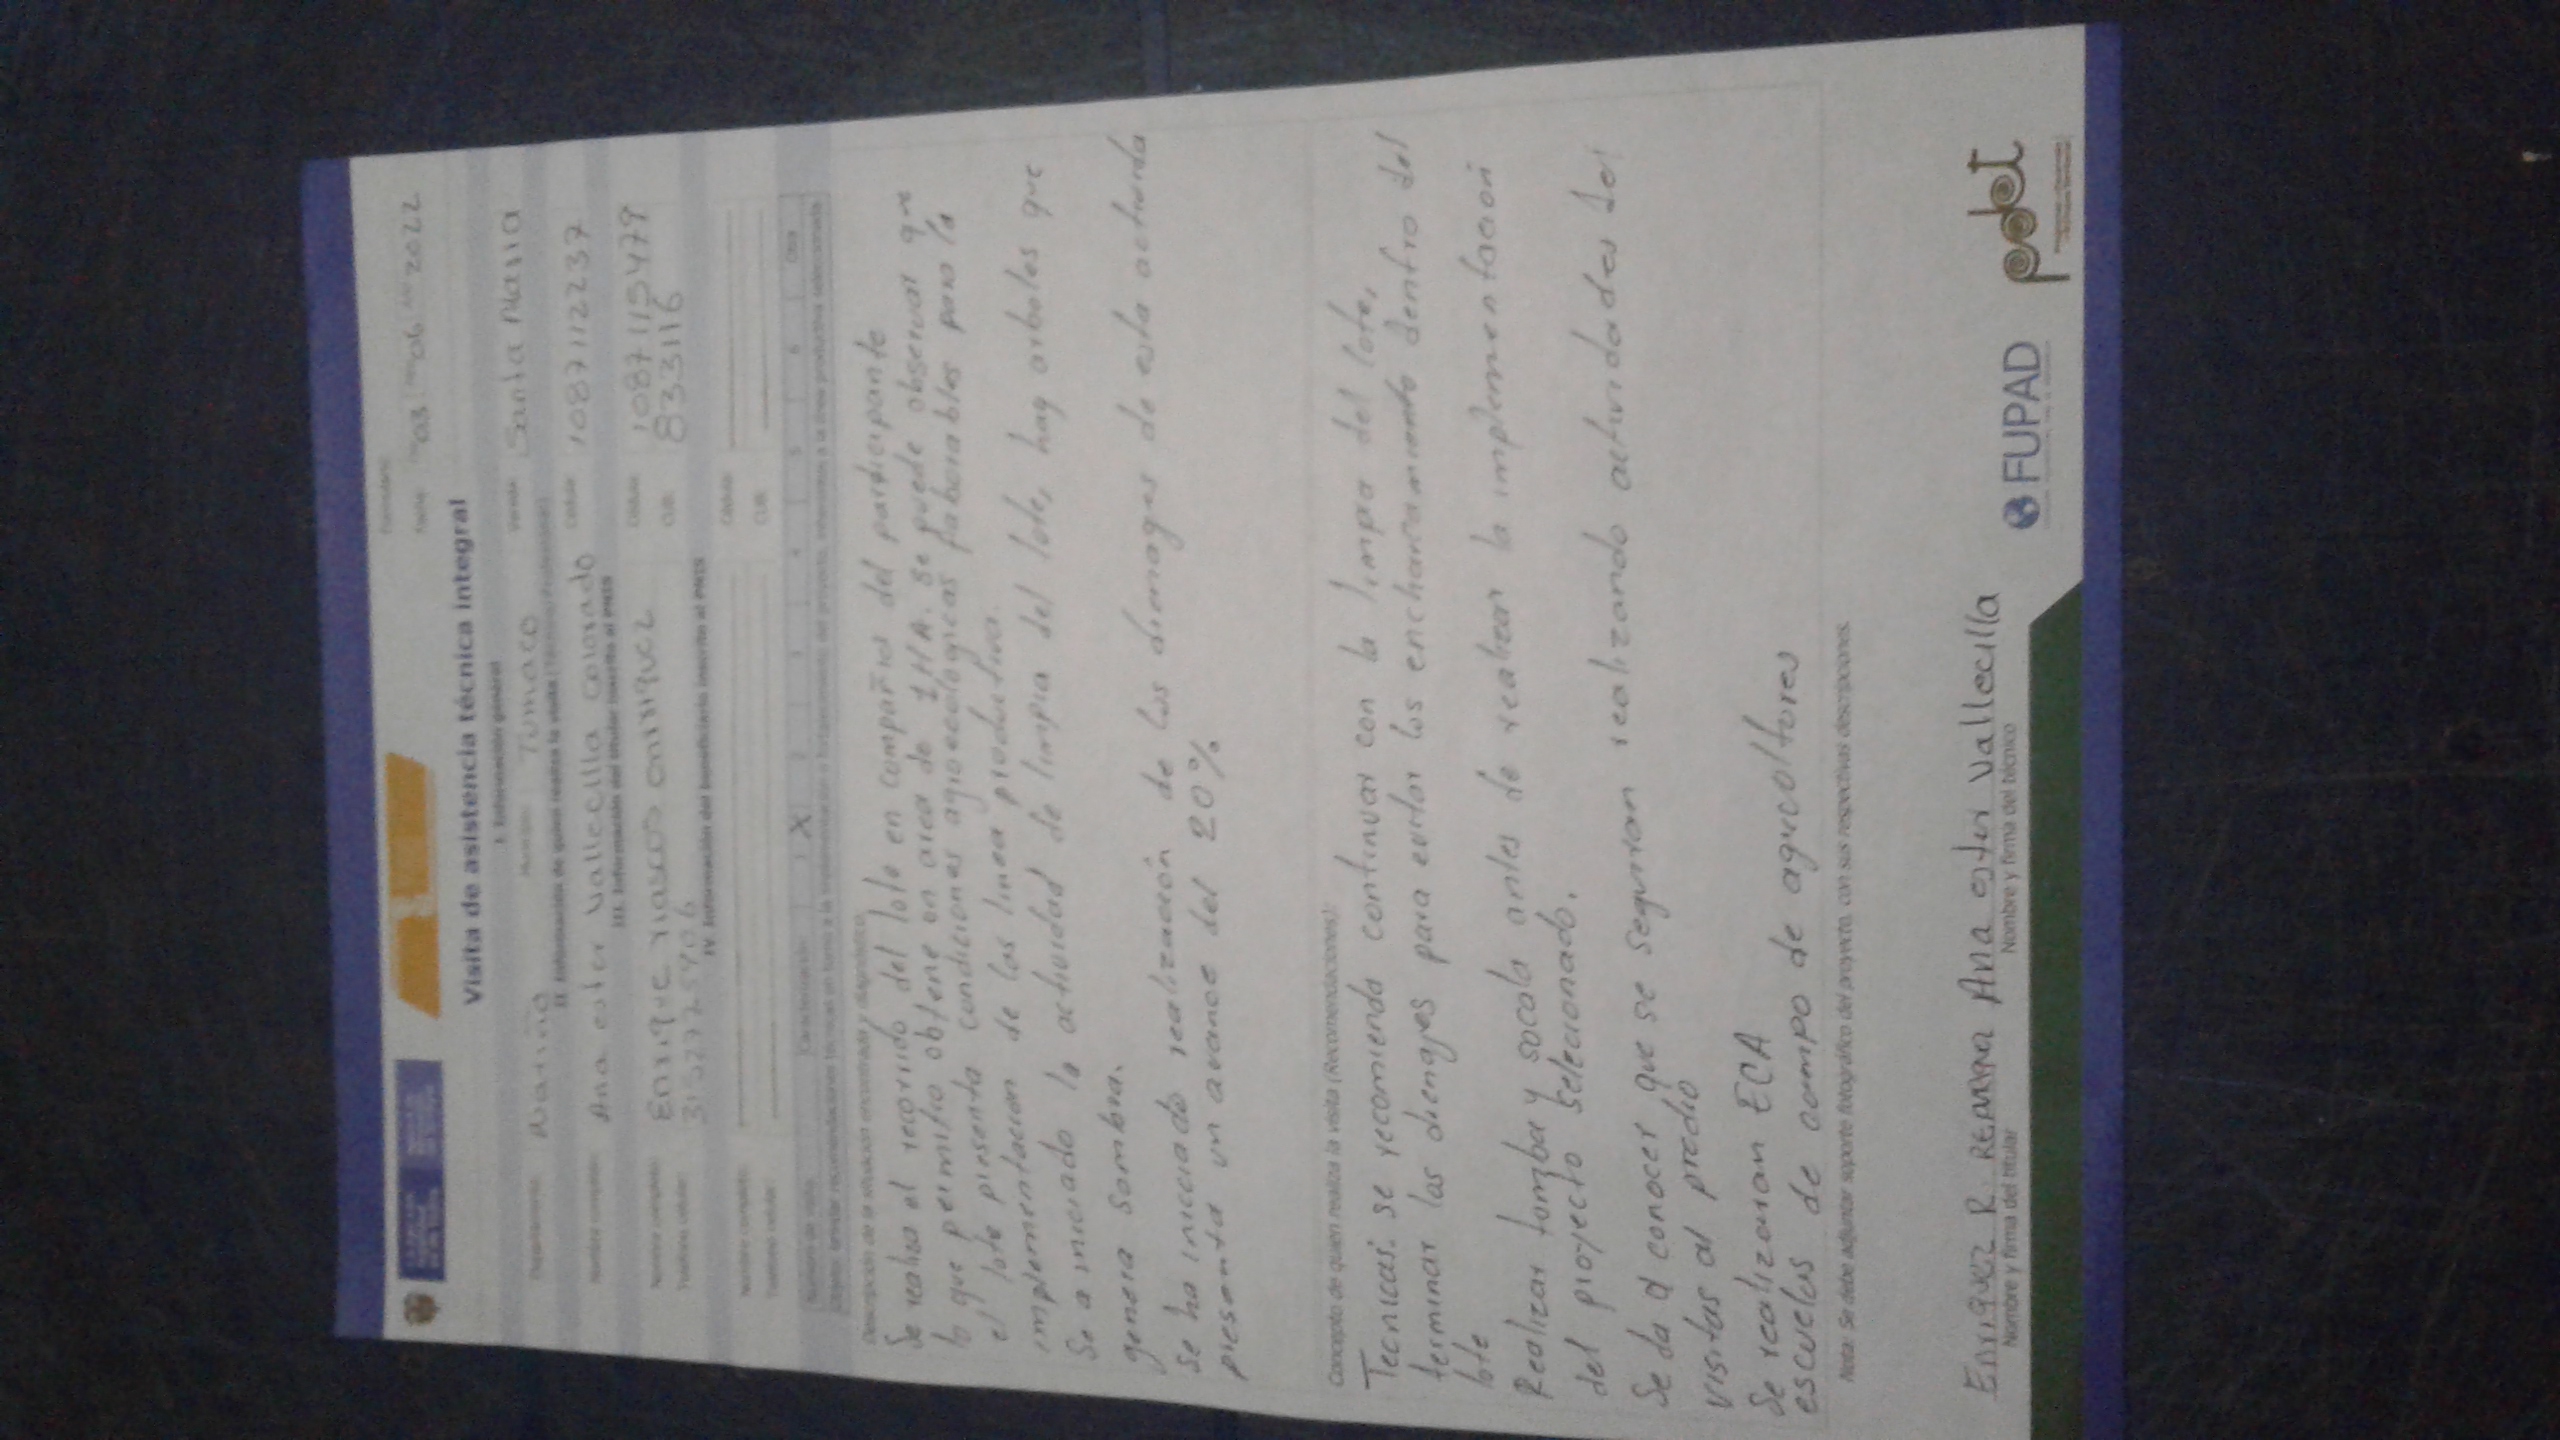 Fecha: 03 06 2022
Visita de asistencia técnica integral
I. Información general
Departamento: Nariño Municipio: Tumaco Vereda: Santa Maria
II. Información de quien realiza la visita
Nombre completo: Ana ester Vallecilla Colorado Cédula: 1087112237
III. Información del titular inscrito al PNIS
Nombre completo: Enrique riascos enrriquez Cédula: 1087115479
Teléfono celular: CUB: 833116
IV. Información del beneficiario inscrito al PNIS
Nombre completo: Cédula:
Teléfono celular: CUB:
Número de visita Caracterización 1 X 2 3 4 5 6 Otra
Descripción de la situación encontrada y diagnóstico
Se realiza el recorrido del lote en compañia del participante
lo que permitio obtene un area de 1 HA. se puede observar que
el lote presenta condiciones agroecologicas faborables para la
implementacion de las linea productiva.
Se a iniciado la actividad de limpia del lote, hay arboles que
genera sombra.
se ha iniciado realización de los drenages de esta actividad
presenta un avance del 20%
Concepto de quien realiza la visita (Recomendaciones):
Tecnicas: se recomienda continuar con la limpia del lote,
terminar los drenajes para evitar los encharcamiento dentro del
lote
Realizar tomba y socala antes de realizar la implementacion
del proyecto seleccionado.
Se da a conocer que se seguiran realizando actividades del
visitas al predio
Se realizaran ECA
escuelas de campo de agricoltores
Nota: Se debe adjuntar soporte fotográfico del proyecto, con sus respectivas descripciones.
Enriquez R. Ana ester Vallecilla
Nombre y firma del titular Nombre y firma del técnico
FUPAD pdet